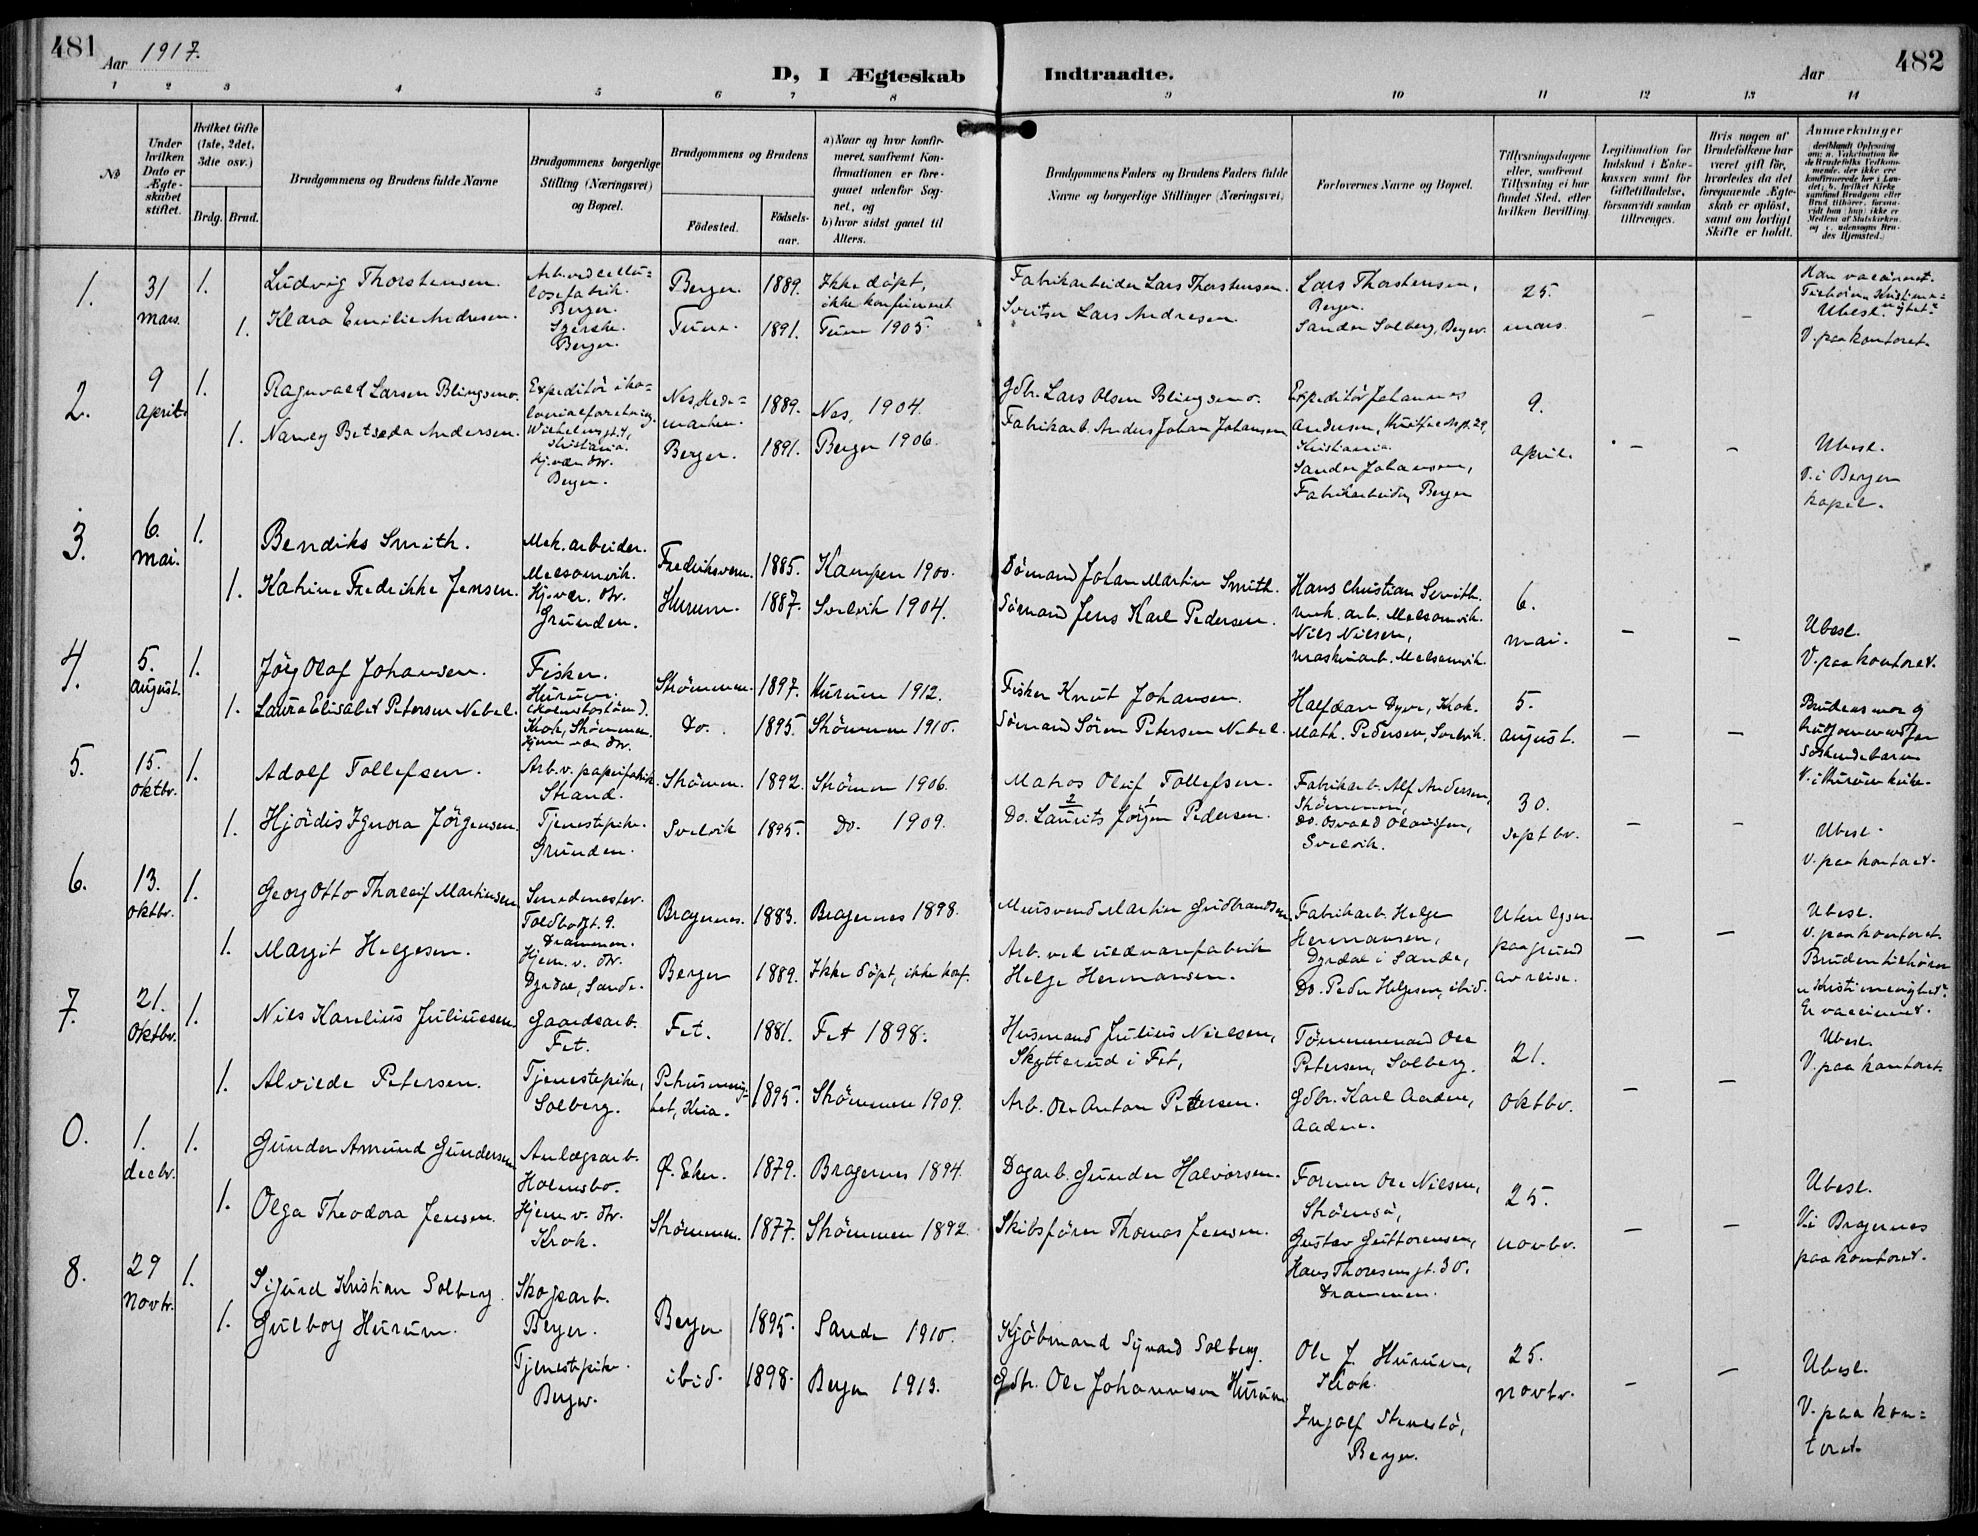 481
Aar 1917.
D, I Ægteskab Indtraadte.
Aar
482
1 2 3 4 5 6 7 8 9 10 11 12 13 14
No
Under hvilken Dato er Ægteskabet stiftet.
Hvilket Gifte (1ste, 2det, 3die osv.)
Brdg. Brud.
Brudgommens og Brudens fulde Navne
Brudgommens borgerlige Stilling (Næringsvei) og Bopæl.
Brudgommens og Brudens
Födested.
Födselsaar.
a) Naar og hvor konfirmeret, saafremt Konfirmationen er foregaaet udenfor Sognet, og
b) hvor sidst gaaet til Alters.
Brudgommens Faders og Brudens Faders fulde Navne og borgerlige Stillinger (Næringsvei)
Forlovernes Navne og Bopæl.
Tillysningsdagene eller, saafremt Tillysning ei har fundet Sted, efter hvilken Bevilling.
Legitimation for Indskud i Enkekassen samt for Giftetilladelse, forsaavidt saadan tiltrænges.
Hvis nogen af Brudefolkene har været gift för, hvorledes da det foregaaende Ægteskab er oplöst, samt om lovligt Skifte er holdt.
Anmerkninger
1. 31 mars. 1. Ludvig Thorstensen. Arb. ved cellulosefabrik. Berger. Berger. 1889. Ikke döpt, ikke konfirmeret Fabrikarbeider Lars Thorstensen. Lars Thorstensen, Berger. 25. mars.
1. Klara Emilie Andresen. Berger. Tune. 1891. Tune 1905. Sveitser Lars Andresen. Sander Solberg, Berger. Ubesl. V. paa kontoret.
2. 9 april. 1. Ragnvald Larsen Blingsmo. Expeditör i kolonialforretning. Wilhelmsgt. 4, Kristiania. Nes, Hedemarken. 1889. Nes, 1904. Gdbr. Lars Olsen Blingsmo. Expeditör Johannes Andersen, Kristiania. 9. april.
1. Nancy Betseda Andersen. Hj. væ. dtr. Berger. Berger. 1891. Berger 1906. Fabrikarb. Anders Johan Johansen Sander Johansen, Fabrikarbeider, Berger Ubesl. V. i Berger kapel.
3. 6. mai. 1. Bendiks Smith. Mek. arbeider. Melsomvik. Fredriksvern. 1885. Kampen 1900. Sömand Johan Martin Smith. Hans Christian Smith. mek. arb. Melsomvik. 6. mai.
1. Katrine Fredrikke Jensen. Hj. vær. dtr. Grunden. Hurum. 1887. Svelvik 1904. Sömand Jens Karl Pedersen. Niels Nielsen, maskinarb. Melsomvik. Ubesl. V. paa kontoret.
4. 5. august. 1. Jörg Olaf Johansen. Fisker. Hurum. Strömmen. 1897. Hurum 1912. Fisker Knut Johansen. Halfdan Dyve, Krok. 5. august.
1. Laura Elisabet Petersen Nebel. Krok, Strömmen. Hjemmev. dtr. Do. 1895. Strömmen 1910. Sömand Sören Petersen Nebel. Math. Pedersen, Svelvik. Brudens mor og brudgommens far söskendebarn V. i Hurum kirke.
5. 15. oktbr. 1. Adolf Tollefsen. Arb. v. papirfabrik Strand. Strömm. 1892. Strömmen 1906. Matros Oluf Tollefsen. Fabrikarb. Alf Andersen, Strömmen, 30. septbr.
1. Hjördis Ignora Jörgensen. Tjenestepike. Grunden. Svelvik 1895. Do. 1909. Do. Laurits Jörgen Pedersen. Svelvik. Ubesl. V. paa kontoret.
6. 13. oktbr. 1. Georg Otto Thorleif Martinsen Smedmester. Toldbodgt. 9. Drammen. Bragernes. 1883. Bragernes 1898. Mursvend Martin Gudbrandsen. Fabrikarb. Helge Hermansen, Dyrdal i Sande, Uten lysn. paa grund av reise.
1. Margit Helgesen. Hjem. v. dtr. Dyrdal, Sande. Berger 1889. Ikke döpt, ikke konf. Arb. ved uldvarefabrik Helge Hermansen. Do. Peder Helgesen, ibid. Ubesl. V. paa kontoret. Bruden tilhörer Er vaccineret.
7. 21. oktbr. 1. Nils Karelius Juliussen. Gaardsarb. Fet. Fet. 1881. Fet 1898. Husmand Julius Nielsen, Skytterud i Fet, Tömmermand Ole Petersen, Solberg. 21. oktbr.
1. Alvilde Petersen. Tjenestepike, Solberg. Petrusmenighet, Kria. 1895. Strömmen 1909. Arb. Ole Anton Petersen. Gdbr. Karl Aadne, Aadne. Ubesl. V. paa kontoret.
0. 1. decbr. 1. Gunder Amund Gundersen Anlægsarb. Holmsbo. Ø. Eker. 1879. Bragernes 1894. Dagarb. Gunder Halvorsen. Former Ole Nilsen, Strömsö, 25. novbr.
1. Olga Theodora Jensen. Hjem v. dtr. Krok. Strömmen. 1877. Strömmen 1892. Skibsförer Thomas Jensen. Gustav Guttormsen, Hans Thoresensgt. 30. Drammen. Ubesl. V. i Bragernes paa kontoret.
8. 29 novbr. 1. Sigurd Kristian Solberg. Skogsarb. Berger. Berger 1895. Sande 1910. Kjöbmand Sigvard Solberg. Ole J. Hurum, Krok. 25. novbr.
1. Gulborg Hurum. Tjenestepike. Berger. ibid. 1898. Berger 1913. Gdbr. Ole Johannesen Hurum Ingolf Stensbö, Berger. Ubesl. V. paa kontoret.